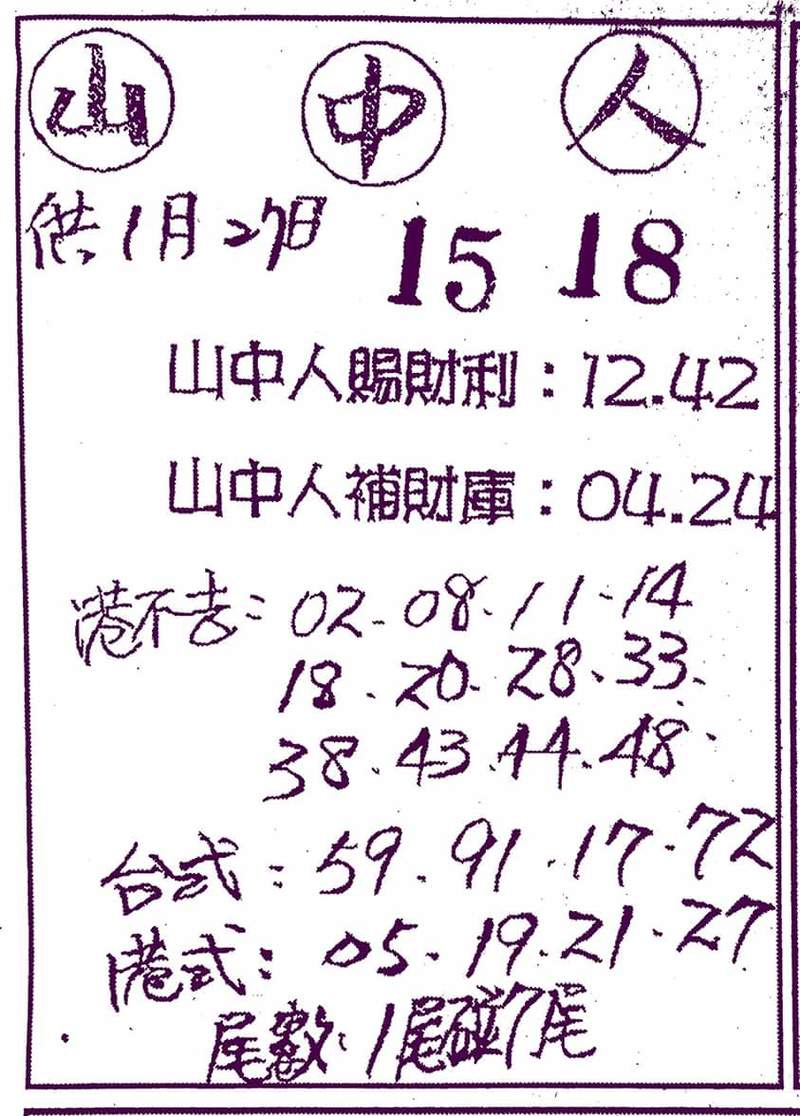 山中人
供1月27日 15 18
山中人賜財利：12.42
山中人補財庫：04.24
港不去：02.08.11.14
18.20.28.33.
38.43.44.48.
台式：59.91.17.72
港式：05.19.21.27
尾數：1尾碰7尾